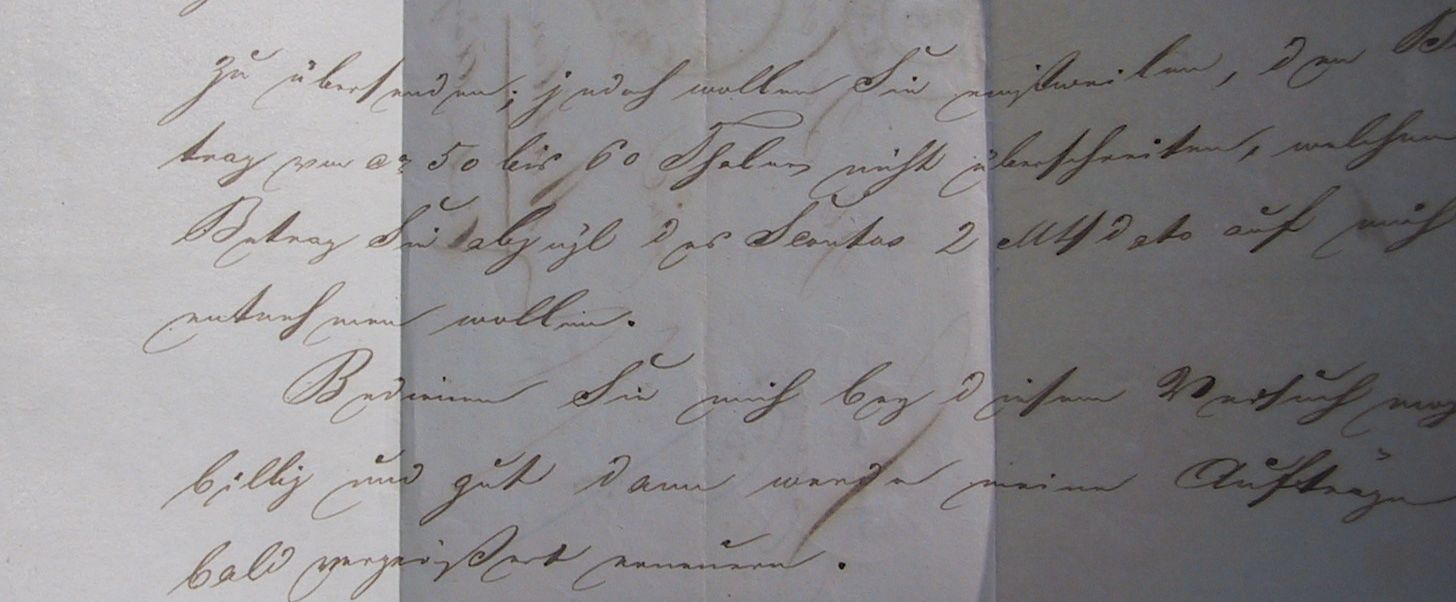 zu übersenden; jedoch wollen Sie einstweilen, den Be
trag von ca 50 bis 60 Thaler nicht überschreiten, welchen
Betrag Sie abzügl des Scontos 2 Mt dato auf mich
entnehmen wollen.
Bedienen Sie mich bey diesem Versuch
billig und gut dann werde meine Aufträge
bald vergrößert erneuern.